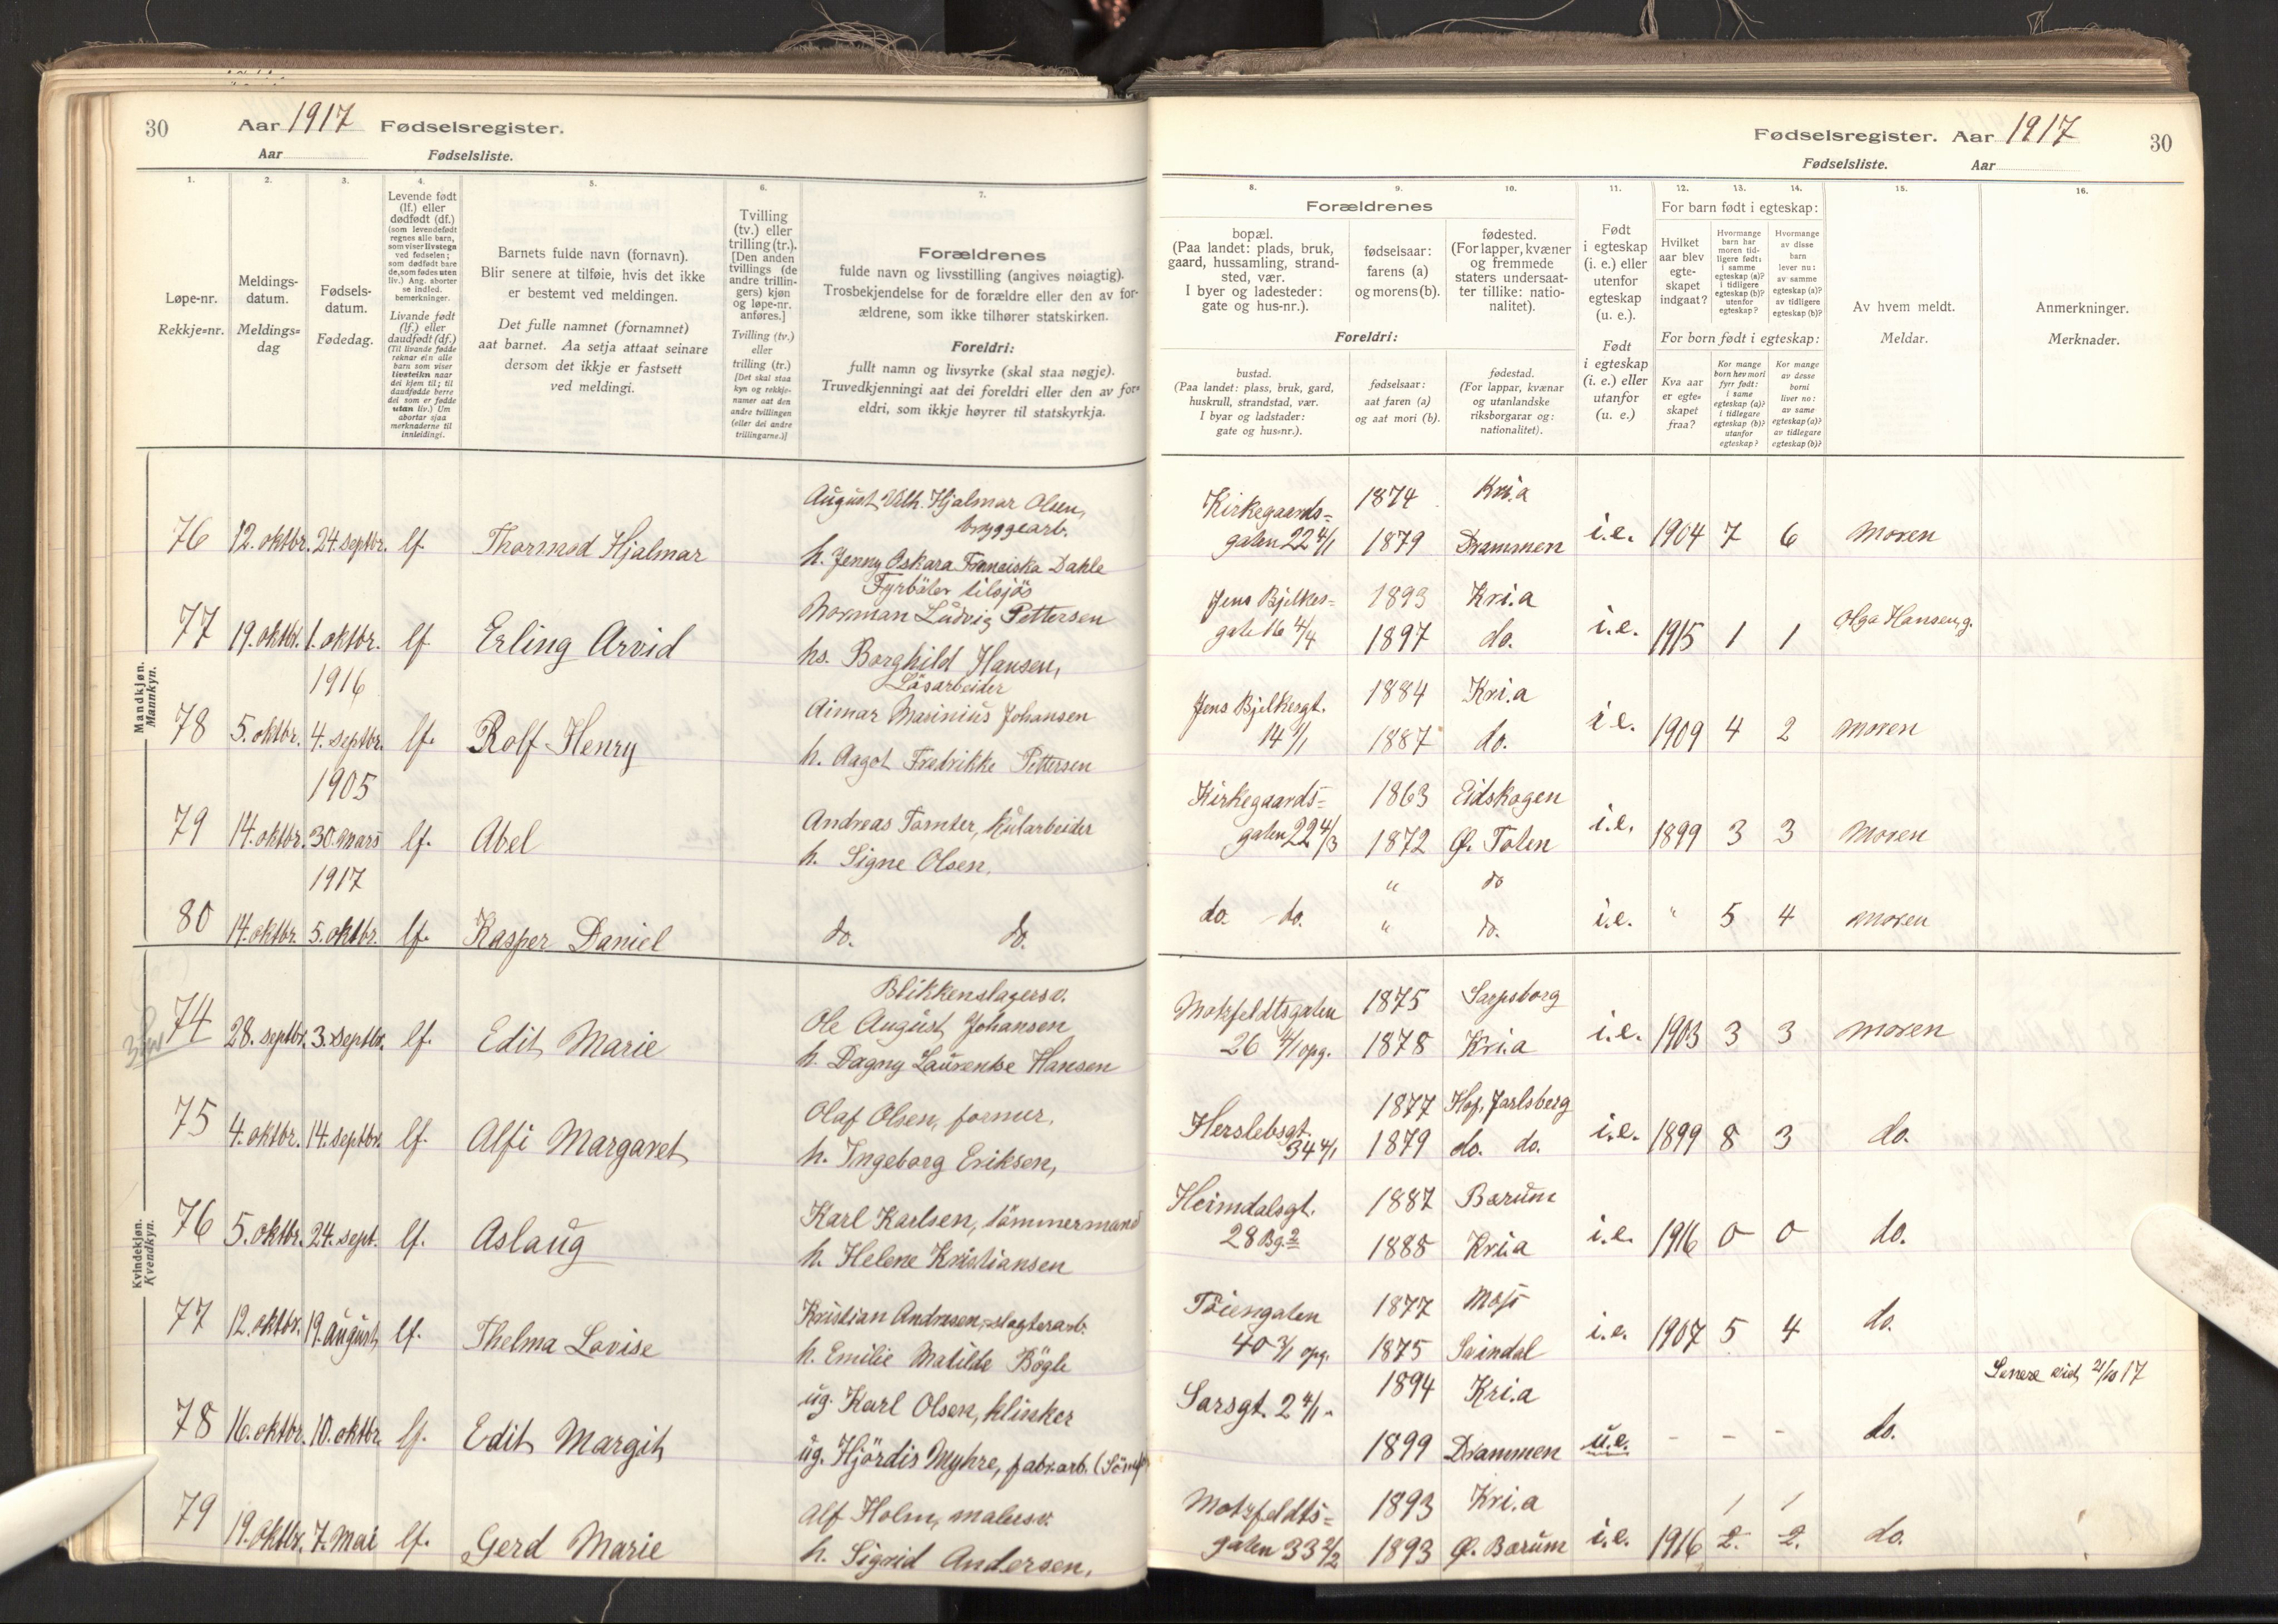 30 Aar 1917 Fødselsregister.
Aar Fødselsliste.
1. 2. 3. 4. 5. 6. 7.
Løpe-nr.
Rekkje-nr.
Meldings-
datum.
Meldings-
dag
Fødsels-
datum.
Fødedag.
Levende født
(lf.) eller
dødfødt (df.)
(som levendefødt
regnes alle barn,
som viser livstegn
ved fødselen;
som dødfødt bare
de, som fødes uten
liv.) Ang. aborter
se indled.
bemerkninger.
Livande født
(lf.) eller
daudfødt (df.)
(Til livande fødde
reknar ein alle
barn som viser
livsteikn naar
dei kjem til; til
daudfødde berre
dei som er fødde
utan liv.) Um
abortar sjaa
merknaderne til
innleidingi.
Barnets fulde navn (fornavn).
Blir senere at tilføie, hvis det ikke
er bestemt ved meldingen.
Det fulle namnet (fornamnet)
aat barnet. Aa setja attaat seinare
dersom det ikkje er fastsett
ved meldingi.
Tvilling
(tv.) eller
trilling (tr.).
[Den anden
tvillings (de
andre trillin-
gers) kjøn
og løpe-nr.
anføres.]
Tvilling (tv.)
eller
trilling (tr.)
[Det skal staa
kyn og rekkje-
numer aat den
andre tvillingen
(eller dei andre
trillingarne.)]
Forældrenes
fulde navn og livsstilling (angives nøiagtig).
Trosbekjendelse for de forældre eller den av for-
ældrene, som ikke tilhører statskirken.
Foreldri:
fullt namn og livsyrke (skal staa nøgje).
Truvedkjenningi aat dei foreldri eller den av for-
eldri, som ikkje høyrer til statskyrkja.
Mandkjøn.
Mannkyn.
August Vilh. Hjalmar Olsen,
bryggearb.
76 12. oktbr. 24. septbr. lf. Thormod Hjalmar
h. Jenny Oskara Franciska Dahle
Fyrböter tilsjös
Norman Ludvig Pettersen
77 19. oktbr. 1. oktbr. lf. Erling Arvid
hs. Borghild Hansen,
1916
Lösarbeider
Aimar Marinius Johansen
78 5. oktbr. 4. septbr. lf. Rolf Henry
h. Aagot Fredrikke Pettersen
1905
Andreas Tomter, kularbeider
79 14. oktbr. 30. mars lf. Abel
h. Signe Olsen.
1917
80 14. oktbr. 5. oktbr. lf. Kasper Daniel do. do.
Kvindekjøn.
Kvendkyn.
Blikkenslagersv.
Ole August Johansen
74 28. septbr. 3. septbr. lf. Edit Marie
h. Dagny Laurentse Hansen
Olaf Olsen, formur.
75 4. oktbr. 14. septbr. lf. Alfi Margaret
h. Ingeborg Eriksen,
Karl Karlsen, tömmermand
76 5. oktbr. 24. sept. lf. Aslaug
h. Helene Kristiansen
Kristian Andresen, slagterarb.
77 12. oktbr. 19. august lf. Thelma Lovise
h. Emilie Matilde Bögle
ug. Karl Olsen, klinker
78 16. oktbr. 10. oktbr. lf. Edit Margit
ug. Hjördis Myhre, fabr.arb.
Alf Holm, malersv.
79 19. oktbr. 7. Mai lf. Gerd Marie
h. Sigrid Andersen,
Fødselsregister. Aar 1917 30
Fødselsliste. Aar
8. 9. 10. 11. 12. 13. 14. 15. 16.
Forældrenes
bopæl.
(Paa landet: plads, bruk,
gaard, hussamling, strand-
sted, vær.
I byer og ladesteder:
gate og hus-nr.).
fødselsaar:
farens (a)
og morens (b).
fødested.
(For lapper, kvæner
og fremmede
staters undersaat-
ter tillike: natio-
nalitet).
Foreldri:
bustad.
(Paa landet: plass, bruk, gard,
huskrull, strandstad, vær.
I byar og ladstader:
gate og hus-nr.).
fødselsaar:
aat faren (a)
og aat mori (b).
fødestad.
(For lappar, kvænar
og utanlandske
riksborgarar og:
nationalitet).
Født
i egteskap
(i. e.) eller
utenfor
egteskap
(u. e.).
Født
i egteskap
(i. e.) eller
utanfor
(u. e.)
For barn født i egteskap:
Hvilket
aar blev
egte-
skapet
indgaat?
Hvormange
barn har
moren tid-
ligere født:
i samme
egteskap (a)?
i tidligere
egteskap (b)?
utenfor
egteskap?
Hvormange
av disse
barn
lever nu:
av samme
egteskap (a)?
av tidligere
egteskap (b)?
For born født i egteskap:
Kva aar
er egte-
skapet
fraa?
Kor mange
born hev mori
fyrr født:
i same
egteskap (a)?
i tidlegare
egteskap (b)?
utanfor
egteskap?
Kor mange
av desse
borni
liver no:
av same
egteskap (a)?
av tidlegare
egteskap (b)?
Av hvem meldt.
Meldar.
Anmerkninger.
Merknader.
Kirkegaards- 1874 Kri.a
gaten 22 4/1 1879 Drammen i.e. 1904 7 6 Moren
Jens Bjelkes- 1893 Kri.a
gate 16 4/4 1897 do. i.e. 1915 1 1 Olga Hansen, g.
Jens Bjelkesgt. 1884 Kri.a
14 1887 do. i.e. 1909 4 2 Moren
Kirkegaards- 1863 Eidskogen
gaten 22 4/3 1872 Ø. Toten i.e. 1899 3 3 Moren
" do
do. do. " do. i.e. " 5 4 moren
Motzfeldtsgaten 1875 Sarpsborg
26 4/1 opg. 1878 Kri.a i.e. 1903 3 3 Moren
1877 Hof, Jarlsberg
Herslebsgt. 34 4/1 1879 do. do. i.e. 1899 8 3 do.
Heimdalsgt. 1887 Bærum
28 Bg. 2 1888 Kri.a i.e. 1916 0 0 do.
Töiengaten 1877 Moss
40 3/1 opg. 1875 Svindal i.e. 1907 5 4 do.
Sarsgt. 2 4/1 1894 Kri.a
1899 Drammen u.e. - - - do.
Senere viet 21/10 17
Motzfeldts- 1893 Kri.a 1 1
gaten 33 2/2 1893 Ø. Bærum i.e. 1916 2. 2. do.